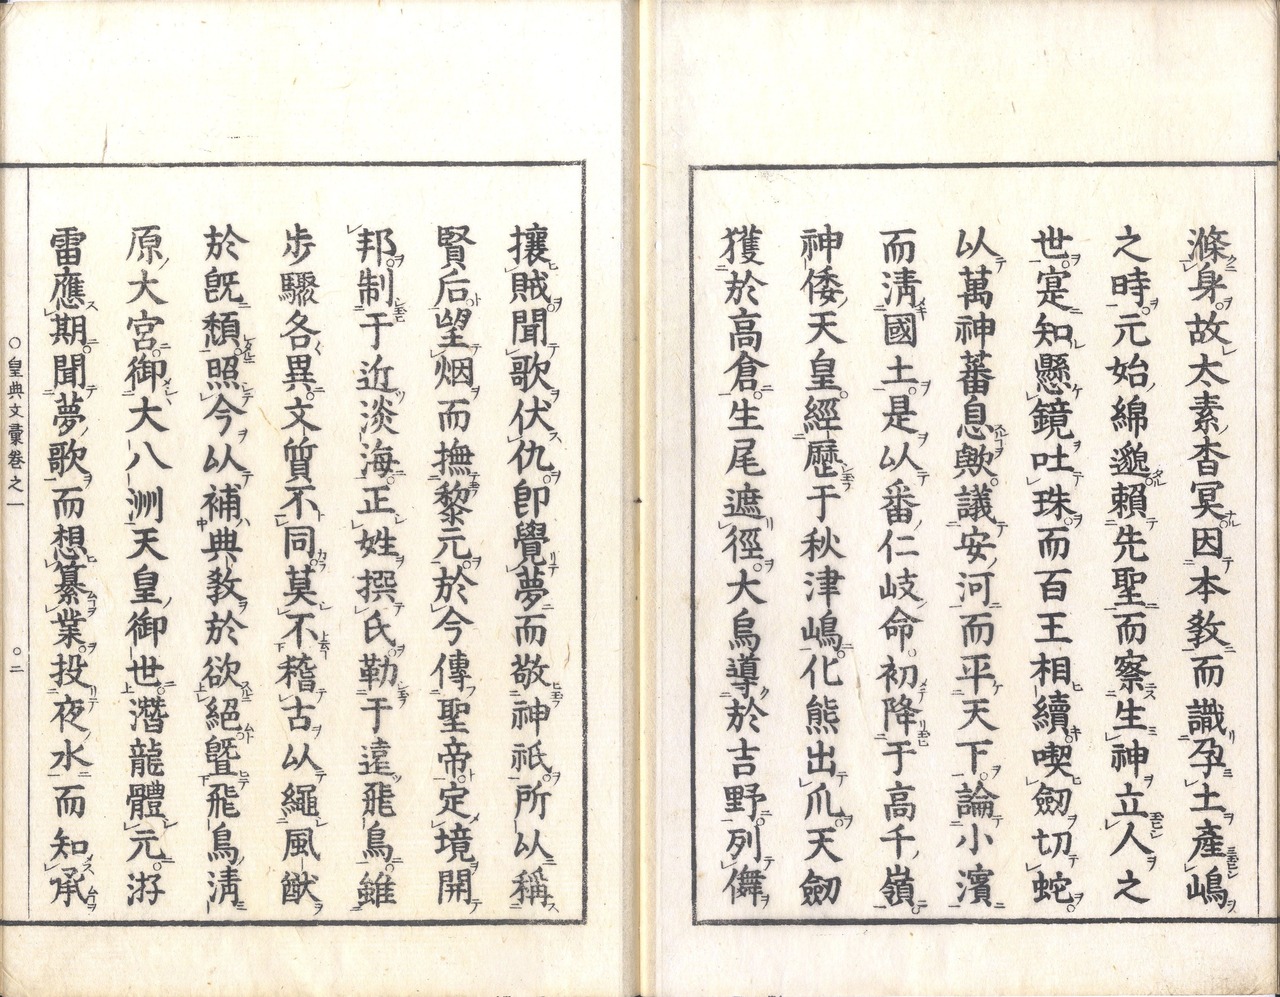 滌身故太素杳冥因本敎而識孕土產嶋
之時元始綿邈賴先聖而察生神立人之
世寔知懸鏡吐珠而百王相續喫劒切蛇
以萬神蕃息歟議安河而平天下論小濱
而淸國土是以番仁岐命初降于高千嶺
神倭天皇經歷于秋津嶋化熊出爪天劒
獲於高倉生尾遮徑大烏導於吉野列儛
攘賊聞歌伏仇卽覺夢而敬神祇所以稱
賢后望烟而撫黎元於今傳聖帝定境開
邦制于近淡海正姓撰氏勒于遠飛鳥雖
步驟各異文質不同莫不稽古以繩風猷
於旣頹照今以補典敎於欲絕曁飛鳥淸
原大宮御大八洲天皇御世潛龍體元游
雷應期聞夢歌而想纂業投夜水而知承
○皇典文彙卷之一 ○二